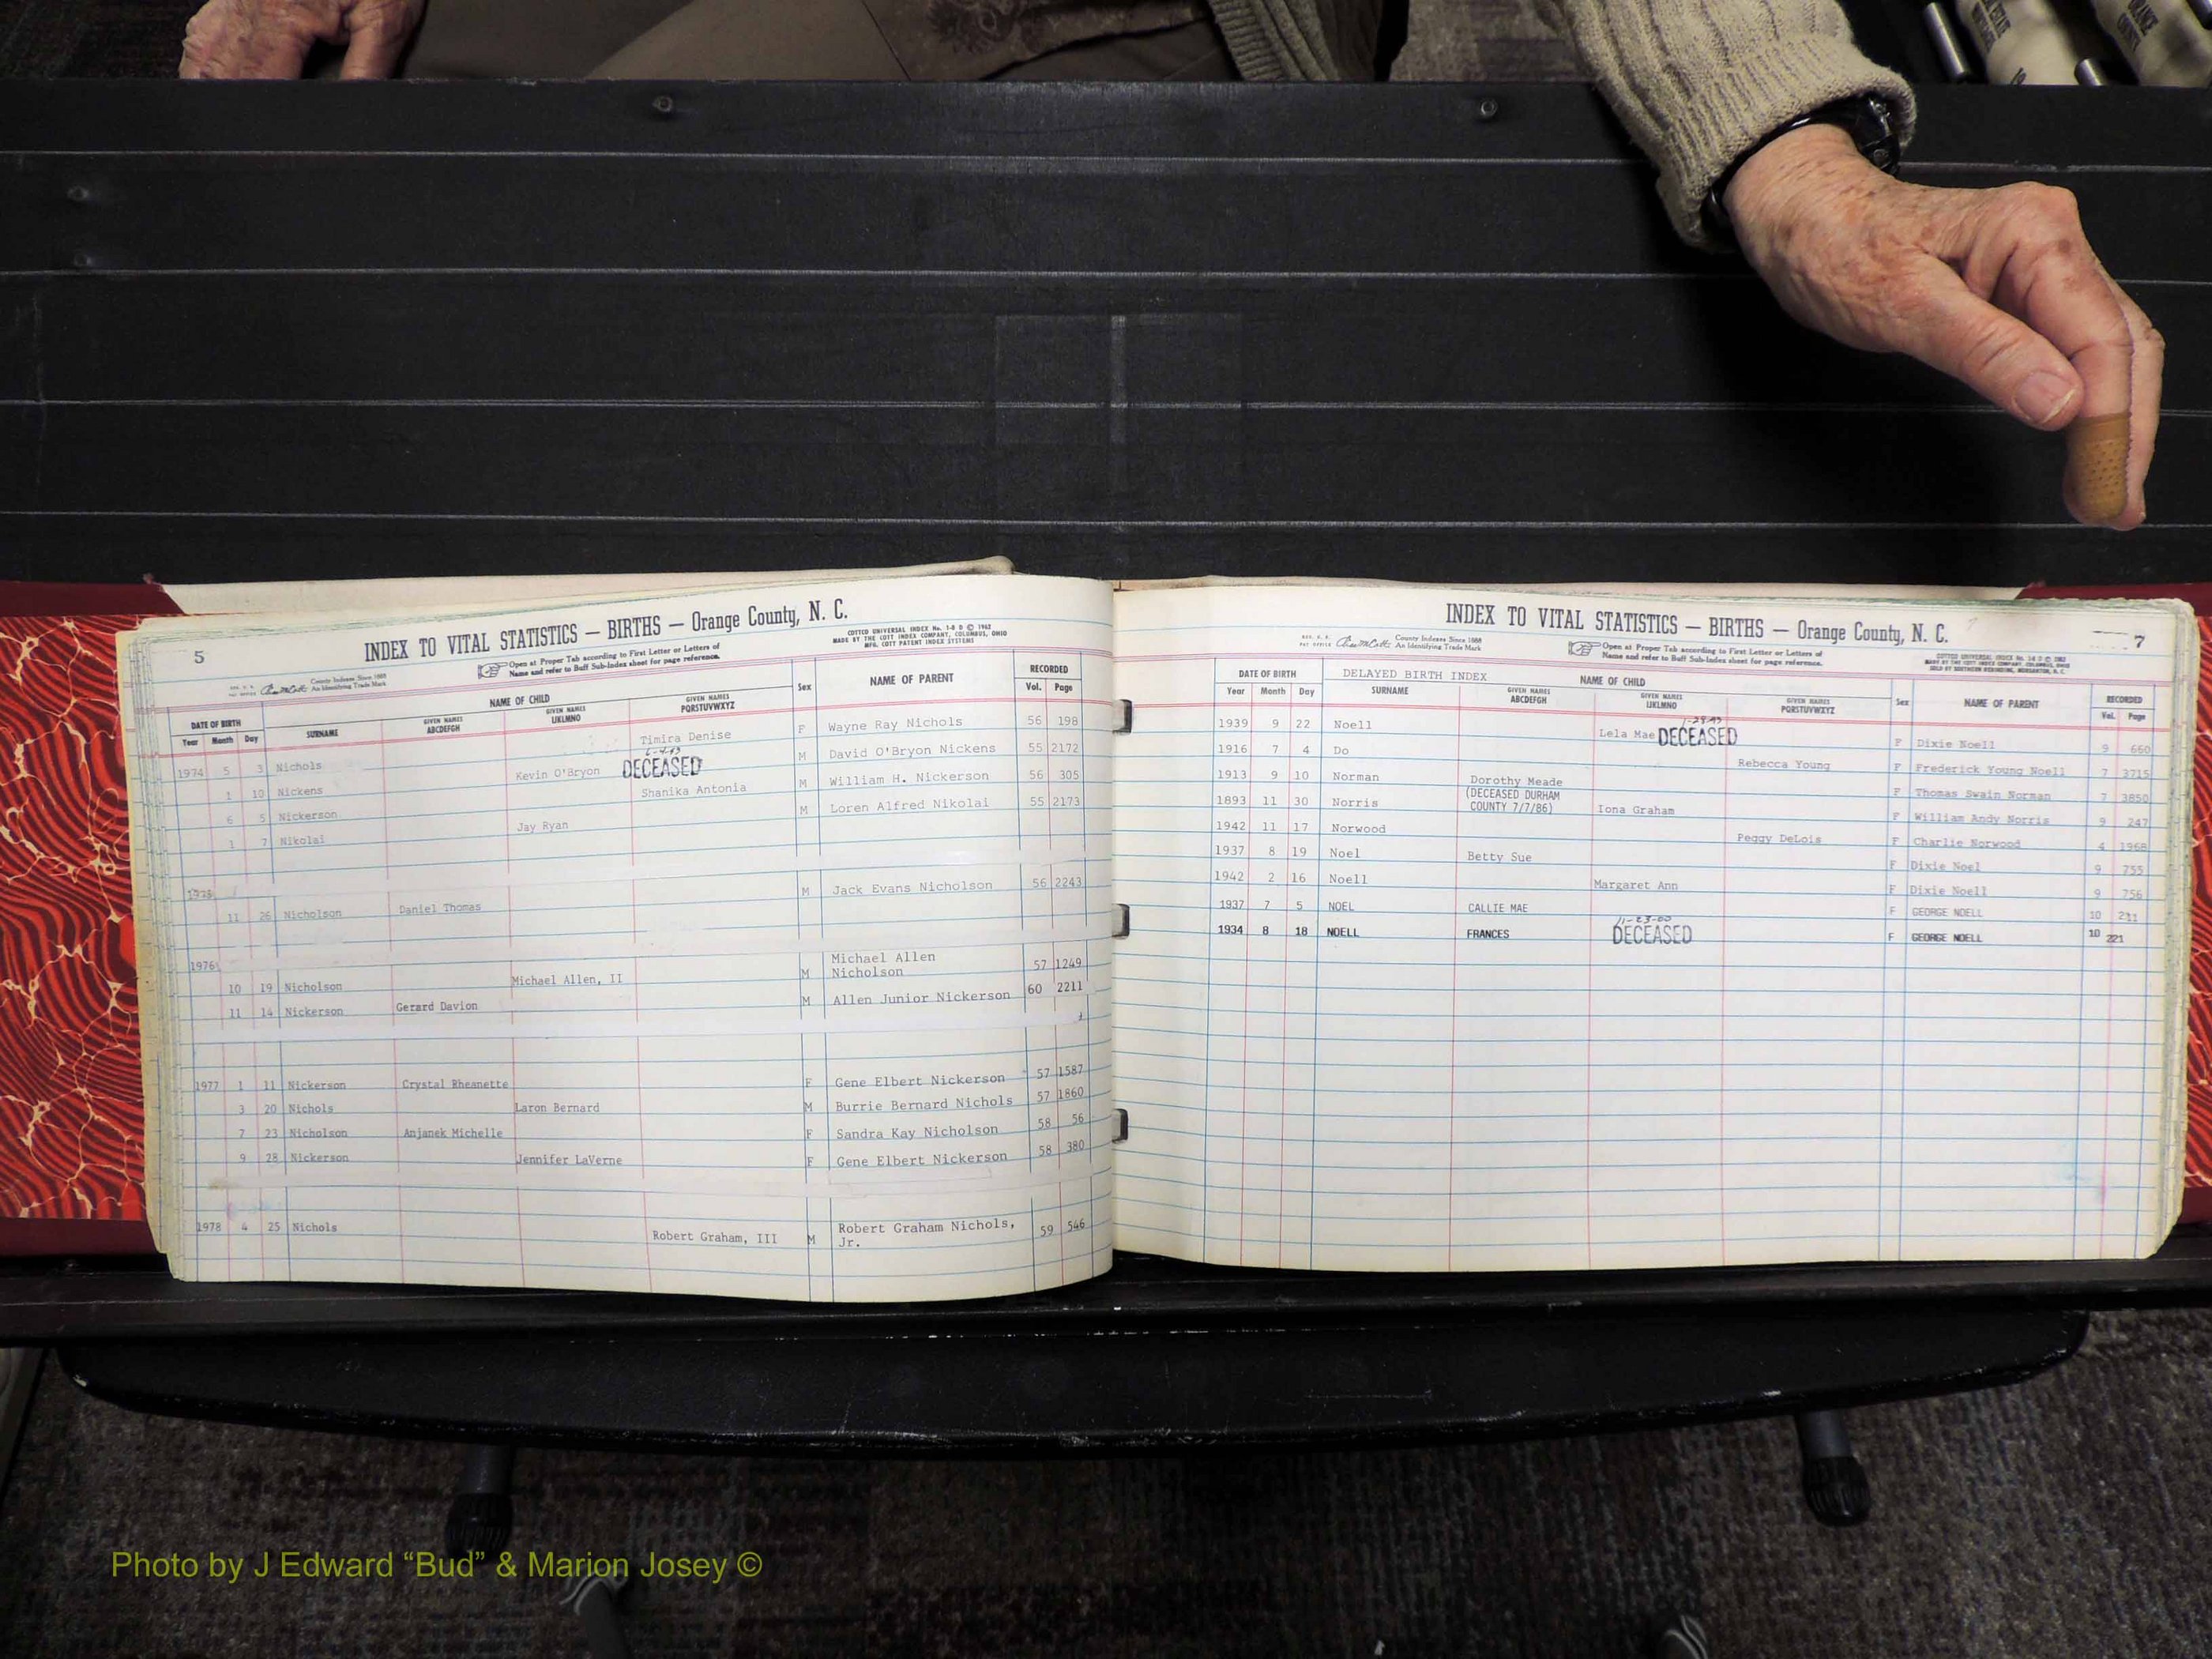 5
INDEX TO VITAL STATISTICS — BIRTHS — Orange County, N. C.
COTTCO UNIVERSAL INDEX No. 1-8 D © 1962
MADE BY THE COTT INDEX COMPANY, COLUMBUS, OHIO
MFG. COTT PATENT INDEX SYSTEMS
County Indexes Since 1888
An Identifying Trade Mark
Open at Proper Tab according to First Letter or Letters of
Name and refer to Buff Sub-Index sheet for page reference.
DATE OF BIRTH NAME OF CHILD Sex NAME OF PARENT RECORDED
Year Month Day SURNAME GIVEN NAMES ABCDEFGH GIVEN NAMES IJKLMNO GIVEN NAMES PQRSTUVWXYZ Vol. Page
1974 5 3 Nichols Timira Denise F Wayne Ray Nichols 56 198
1 10 Nickens Kevin O'Bryon DECEASED M David O'Bryon Nickens 55 2172
6 5 Nickerson Shanika Antonia M William H. Nickerson 56 305
1 7 Nikolai Jay Ryan M Loren Alfred Nikolai 55 2173
1975
11 26 Nicholson Daniel Thomas M Jack Evans Nicholson 56 2243
1976
10 19 Nicholson Michael Allen, II M Michael Allen Nicholson 57 1249
11 14 Nickerson Gerard Davion M Allen Junior Nickerson 60 2211
1977 1 11 Nickerson Crystal Rheanette F Gene Elbert Nickerson 57 1587
3 20 Nichols Laron Bernard M Burrie Bernard Nichols 57 1860
7 23 Nicholson Anjanek Michelle F Sandra Kay Nicholson 58 56
9 28 Nickerson Jennifer LaVerne F Gene Elbert Nickerson 58 380
1978 4 25 Nichols Robert Graham, III M Robert Graham Nichols, Jr. 59 546
INDEX TO VITAL STATISTICS — BIRTHS — Orange County, N. C.
7
County Indexes Since 1888
An Identifying Trade Mark
Open at Proper Tab according to First Letter or Letters of
Name and refer to Buff Sub-Index sheet for page reference.
DELAYED BIRTH INDEX
DATE OF BIRTH NAME OF CHILD Sex NAME OF PARENT RECORDED
Year Month Day SURNAME GIVEN NAMES ABCDEFGH GIVEN NAMES IJKLMNO GIVEN NAMES PQRSTUVWXYZ Vol. Page
1939 9 22 Noell Lela Mae DECEASED F Dixie Noell 9 660
1916 7 4 Do Rebecca Young F Frederick Young Noell 7 3715
1913 9 10 Norman Dorothy Meade (DECEASED DURHAM COUNTY 7/7/86) F Thomas Swain Norman 7 3850
1893 11 30 Norris Iona Graham F William Andy Norris 9 247
1942 11 17 Norwood Peggy DeLois F Charlie Norwood 4 1968
1937 8 19 Noel Betty Sue F Dixie Noel 9 755
1942 2 16 Noell Margaret Ann F Dixie Noell 9 756
1937 7 5 NOEL CALLIE MAE F GEORGE NOELL 10
1934 8 18 NOELL FRANCES 11-23-00 DECEASED F GEORGE NOELL 10 221
ORANGE
COUNTY
Photo by J Edward “Bud” & Marion Josey ©